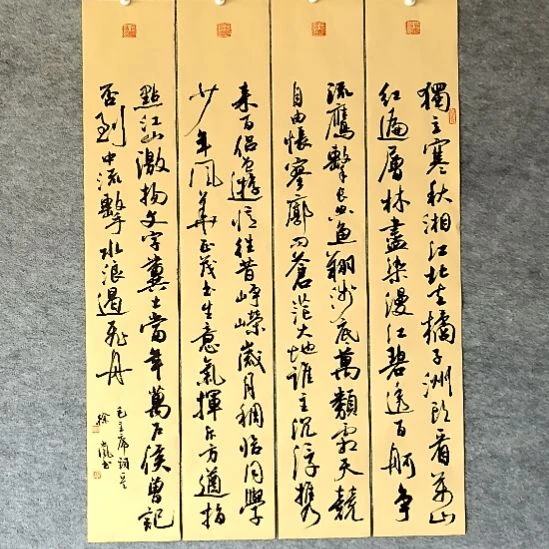 獨立寒秋湘江北去橘子洲頭看萬山
紅遍層林盡染漫江碧透百舸爭
流鷹擊長空魚翔淺底萬類霜天競
自由悵寥廓问蒼茫大地誰主沉浮携
来百侣曾遊憶往昔崢嶸歲月稠恰同學
少年風華正茂书生意氣揮斥方遒指
點江山激揚文字糞土當年萬户侯曾記
否到中流擊水浪遏飛舟
毛主席詞
徐嵐书